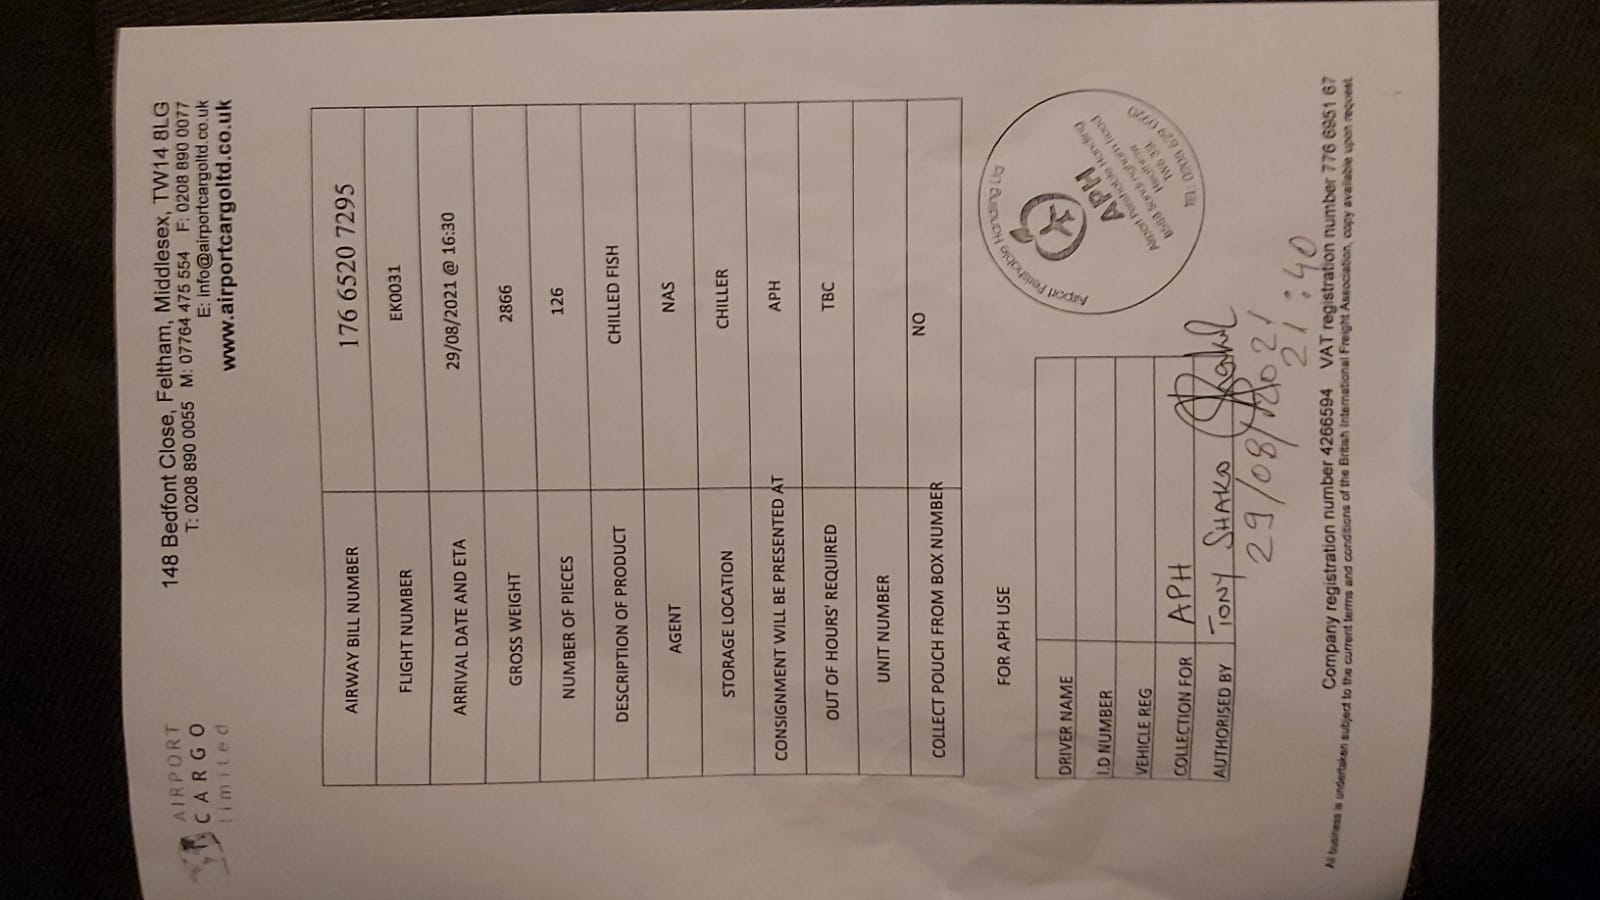 AIRPORT
CARGO
limited
148 Bedfont Close, Feltham, Middlesex, TW14 8LG
T: 0208 890 0055 M: 07764 475 554 F: 0208 890 0077
E: info@airportcargoltd.co.uk
www.airportcargoltd.co.uk
AIRWAY BILL NUMBER 176 6520 7295
FLIGHT NUMBER EK0031
ARRIVAL DATE AND ETA 29/08/2021 @ 16:30
GROSS WEIGHT 2866
NUMBER OF PIECES 126
DESCRIPTION OF PRODUCT CHILLED FISH
AGENT NAS
STORAGE LOCATION CHILLER
CONSIGNMENT WILL BE PRESENTED AT APH
OUT OF HOURS' REQUIRED TBC
UNIT NUMBER
COLLECT POUCH FROM BOX NUMBER NO
FOR APH USE
DRIVER NAME
I.D NUMBER
VEHICLE REG
COLLECTION FOR APH
AUTHORISED BY TONY SHAKO
29/08/2021
21:40
Airport Perishable Handling Ltd
APH
Airport Perishable Handling
Sandringham Road
Heathrow
TW6
TEL: 0208
Company registration number 4266594 VAT registration number 776 6951 67
All business is undertaken subject to the current terms and conditions of the British International Freight Association, copy available upon request.